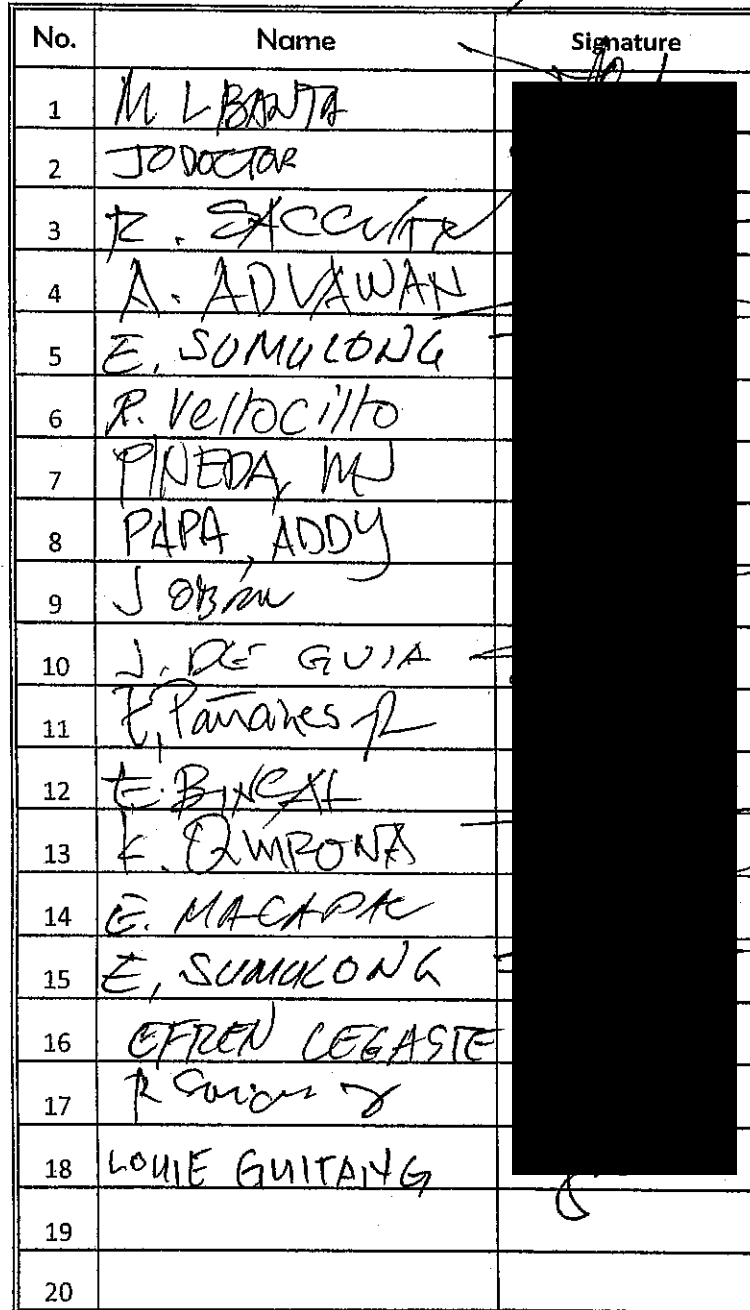 No. Name Signature
1 M. L BANTA
2 JO DOCTOR
3 R.
4 A. ADVAWAN
5 E. SUMULONG
6 R. Vellocillo
7 PINEDA, MJ
8 PAPA, ADDY
9 J
10 J. DE GUIA
11 E. Pañares JR
12 E. BINGAL
13 QUIPONA
14 E. MACAPAC
15 E. SUMULONG
16 EFREN LEGASTE
17 R
18 LOUIE GUITANG
19
20